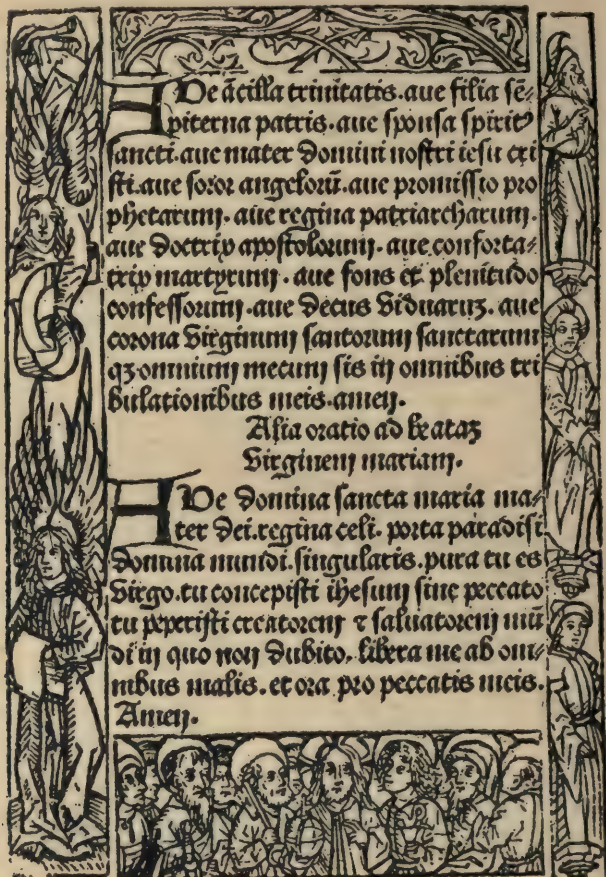 AUe ācilla trinitatis. aue filia sē-
piterna patris. aue sponsa spirit⁹
sancti. aue mater domini nostri iesu cri
sti. aue soror angelorū. aue promissio pro
phetarum. aue regina patriarcharum.
aue doctrix apostolorum. aue conforta-
trix martyrum. aue fons et plenitudo
confessorum. aue decus viduaruꝫ. aue
corona virginum santorum sanctarum
qꝫ omnium mecum sis in omnibus tri
bulationibus meis. amen.
Alia oratio ad beataꝫ
virginem mariam.
AUe domina sancta maria ma-
ter dei. regina celi. porta paradisi
domina mundi. singularis. pura tu es
virgo. tu concepisti ihesum sine peccato
tu peperisti creatorem ⁊ saluatorem mū
di in quo non dubito. libera me ab om-
nibus malis. et ora pro peccatis meis.
Amen.